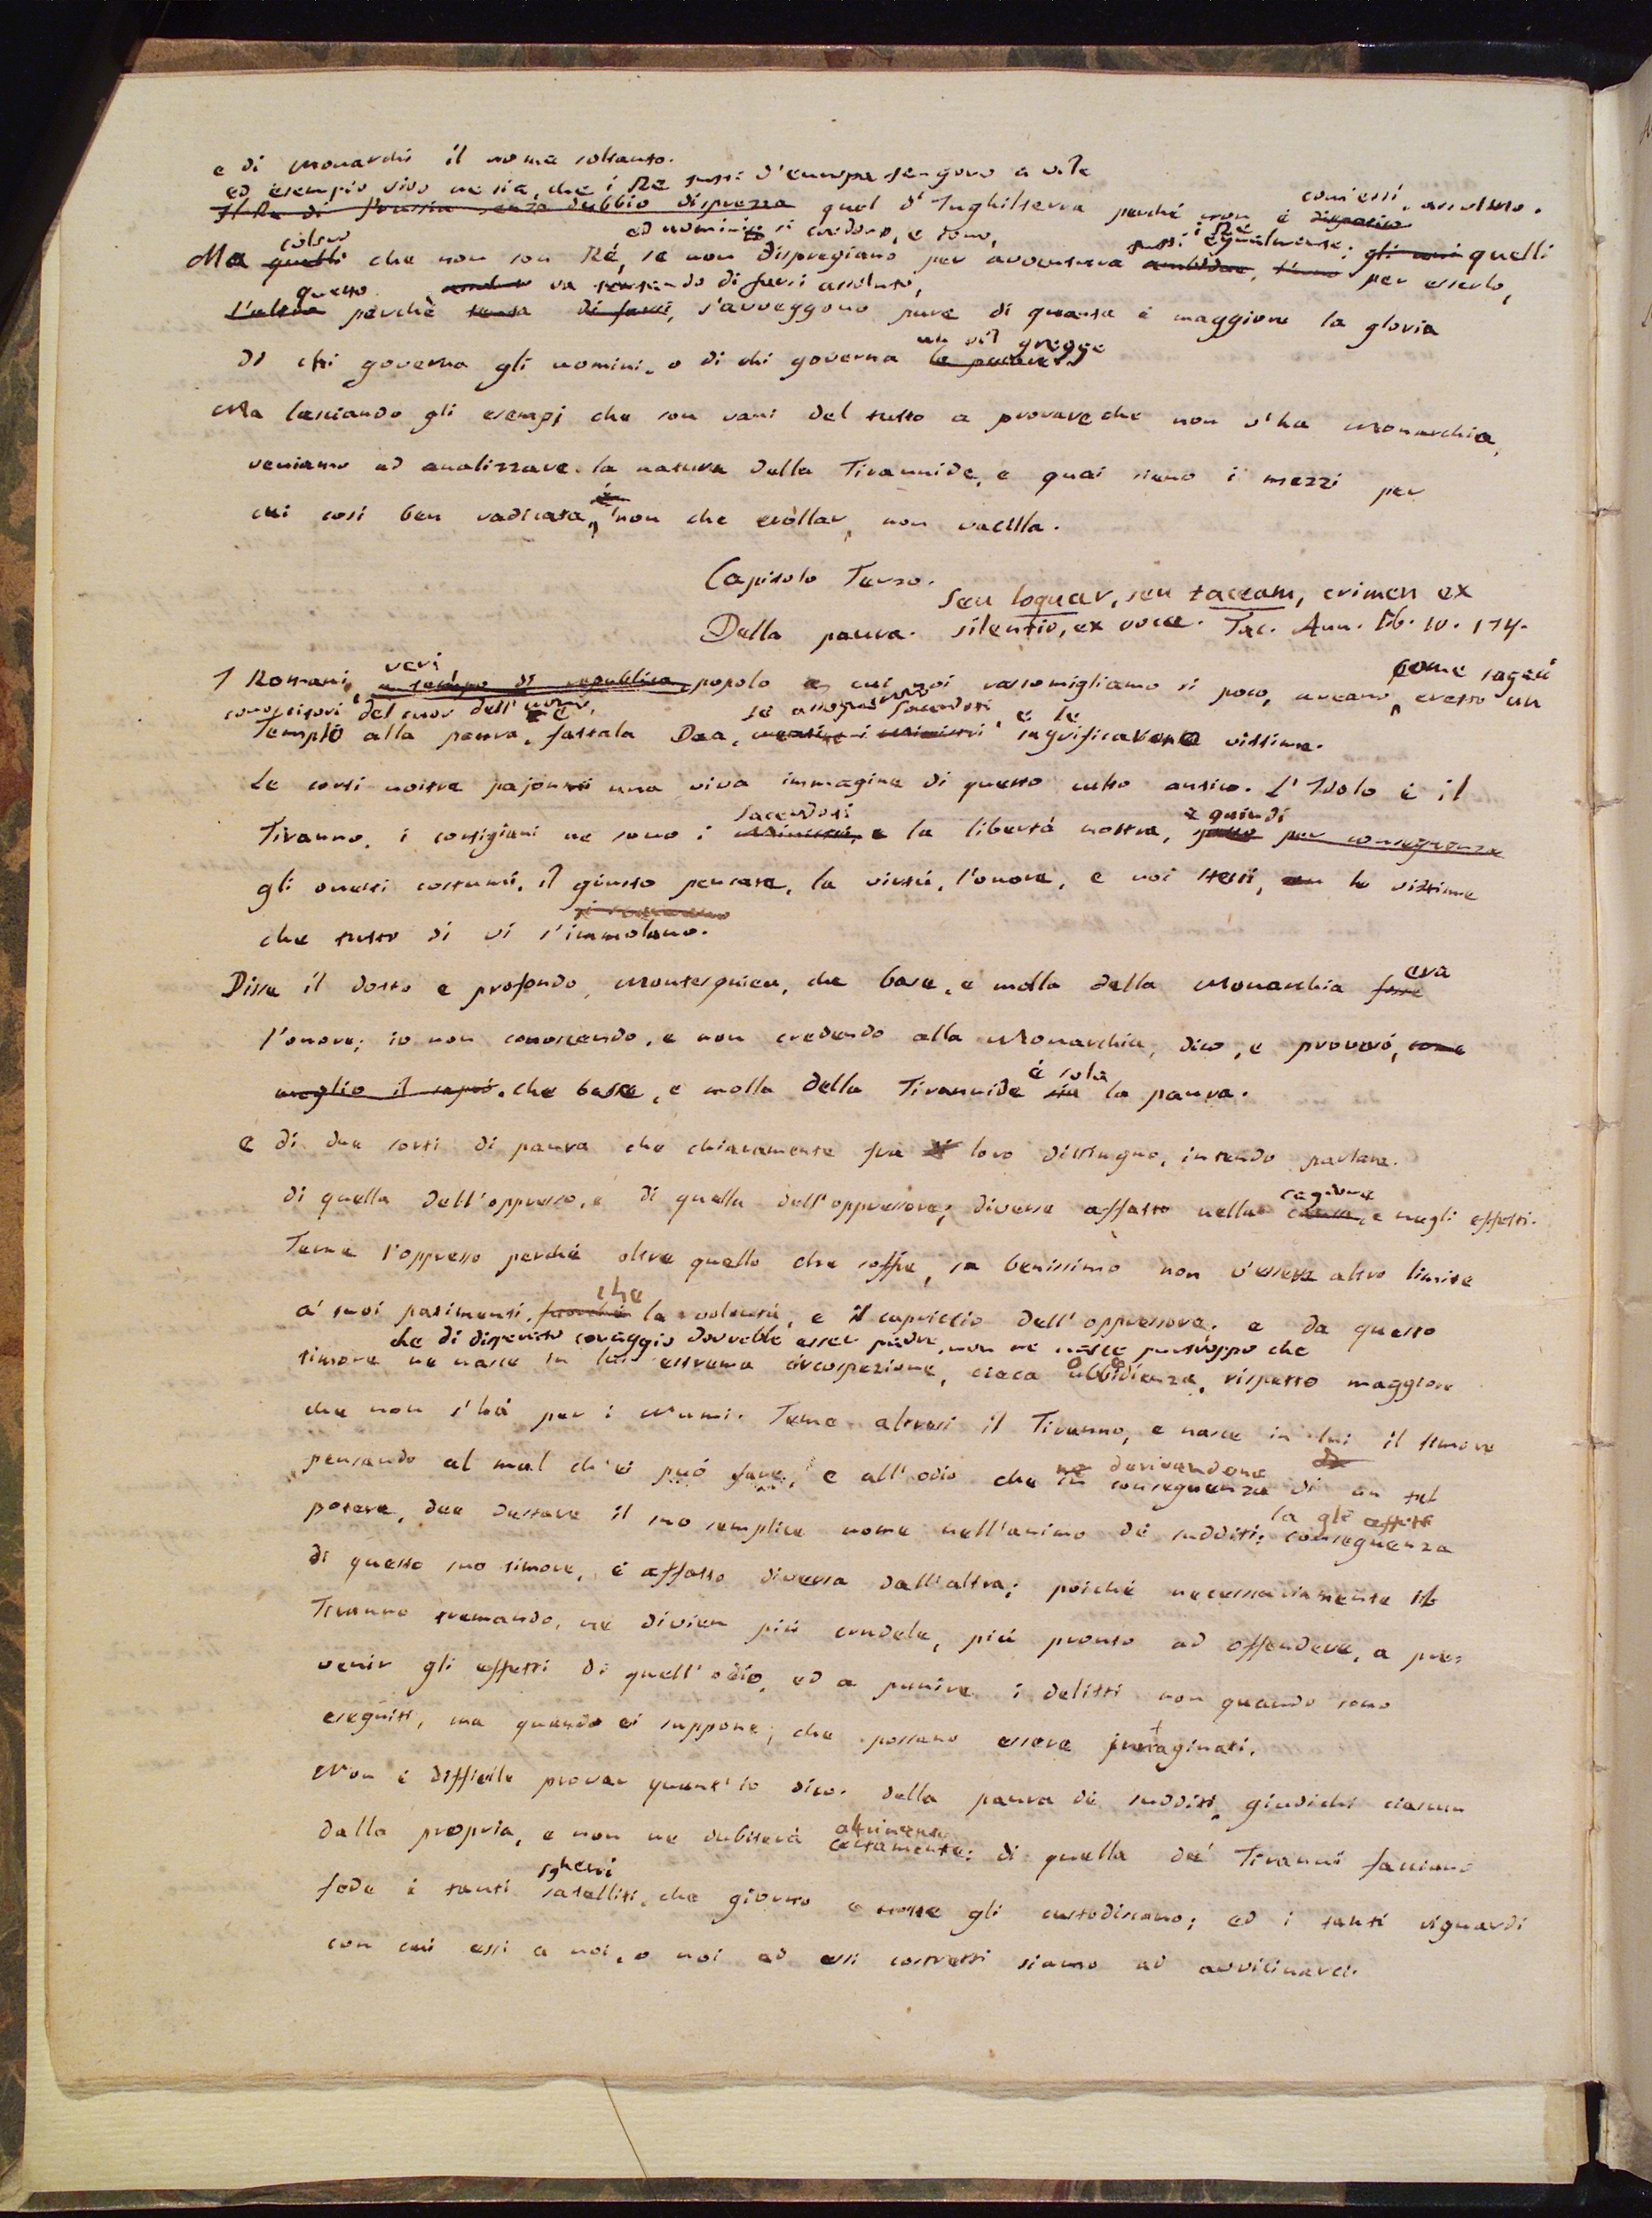 e di Monarchi il nome soltanto.
ed esempio vivo ne sia, che i Re tutti d'europa tengono a vile
Il Re di Prussia senza dubbio disprezza quel d'Inghilterra perché non è dispotico com'essi, assoluto.
coloro ed uomini si credono, e sono, tutti i Re egualmente;
Ma quelli che non son Ré, se non dispregiano per avventura ambidue, l'uno gli uni quelli per esserlo,
questo va tentando di farsi assoluto,
l'altro perchè tenta di farsi, s'avveggono pure di quanta è maggiore la gloria
un vil gregge
di chi governa gli uomini, o di chi governa le pecore.
Ma lasciando gli esempj che son vani del tutto a provare che non v'ha Monarchia,
veniamo ad analizzare la natura della Tirannide, e quai sieno i mezzi per
cui così ben radicata, non che crollar, non vacilla.
Capitolo Terzo.
Seu loquar, seu taceam, crimen ex
Della paura. silentio, ex voce. Tac. Ann. lib. IV. 174.
veri come sagaci
I Romani, a tempo di republica, popolo a cui noi rassomigliamo sì poco, aveano, eretto un
conoscitori del cuor dell'uomo, sacerdoti, e le
Templo alla paura, fattala Dea, i ministri sagrificavono vittime.
Le corti nostre pajonmi una viva immagine di questo culto antico. L'Idolo è il
sacerdoti e quindi
Tiranno, i cortigiani ne sono i ministri, e la libertà nostra, per conseguenza
gli onesti costumi, il giusto pensare, la virtù, l'onore, e noi stessi, le vittime
che tutto dì vi s'immolano.
Disse il dotto e profondo, Montesquieu, che base, e molla della Monarchia fosse era
l'onore; io non conoscendo, e non credendo alla Monarchia, dico, e proverò, come
è sola
meglio il saprò, che base, e molla della Tirannide sia la paura.
e di due sorti di paura che chiaramente fra di loro distinguo, intendo parlare.
cagione
di quella dell'oppresso, e di quella dell'oppressore; diverse affatto nella causa, e negli effetti.
Teme l'oppresso perché oltre quello che soffre, sa benissimo non v'essere altro limite
che
a' suoi patimenti, fuorché la volontà, e il capriccio dell'oppressore; e da questo
che di disperato coraggio dovrebbe esser padre, non ne nasce purtroppo che
timore ne nasce in lui estrema circospezione, cieca obbidienza, rispetto maggiore
che non s'ha per i Numi. Teme altresì il Tiranno, e nasce in lui il timore
ne derivandone
pensando al mal ch'ei può fare, e all'odio che in conseguenza di un tal
la gli effetti
potere, dee destare il suo semplice nome nell'animo dè sudditi; conseguenza
di questo suo timore, è affatto diversa dall'altra; poiché necessariamente il
Tiranno tremando, ne divien più crudele, più pronto ad offendere, a pre=
venir gli effetti di quell'odio, ed a punire i delitti non quando sono
eseguiti, ma quando ei suppone, che possano essere immaginati.
Non è difficile provar quant'io dico. della paura dè sudditi, giudichi ciascun
dalla propria, e non ne dubiterà certamente; di quella de' Tiranni facciano
sgherri
fede i tanti satelliti, che giorno e notte gli custodiscono; ed i tanti riguardi
con cui essi a noi, o noi ad essi costretti siamo ad avvicinarci.